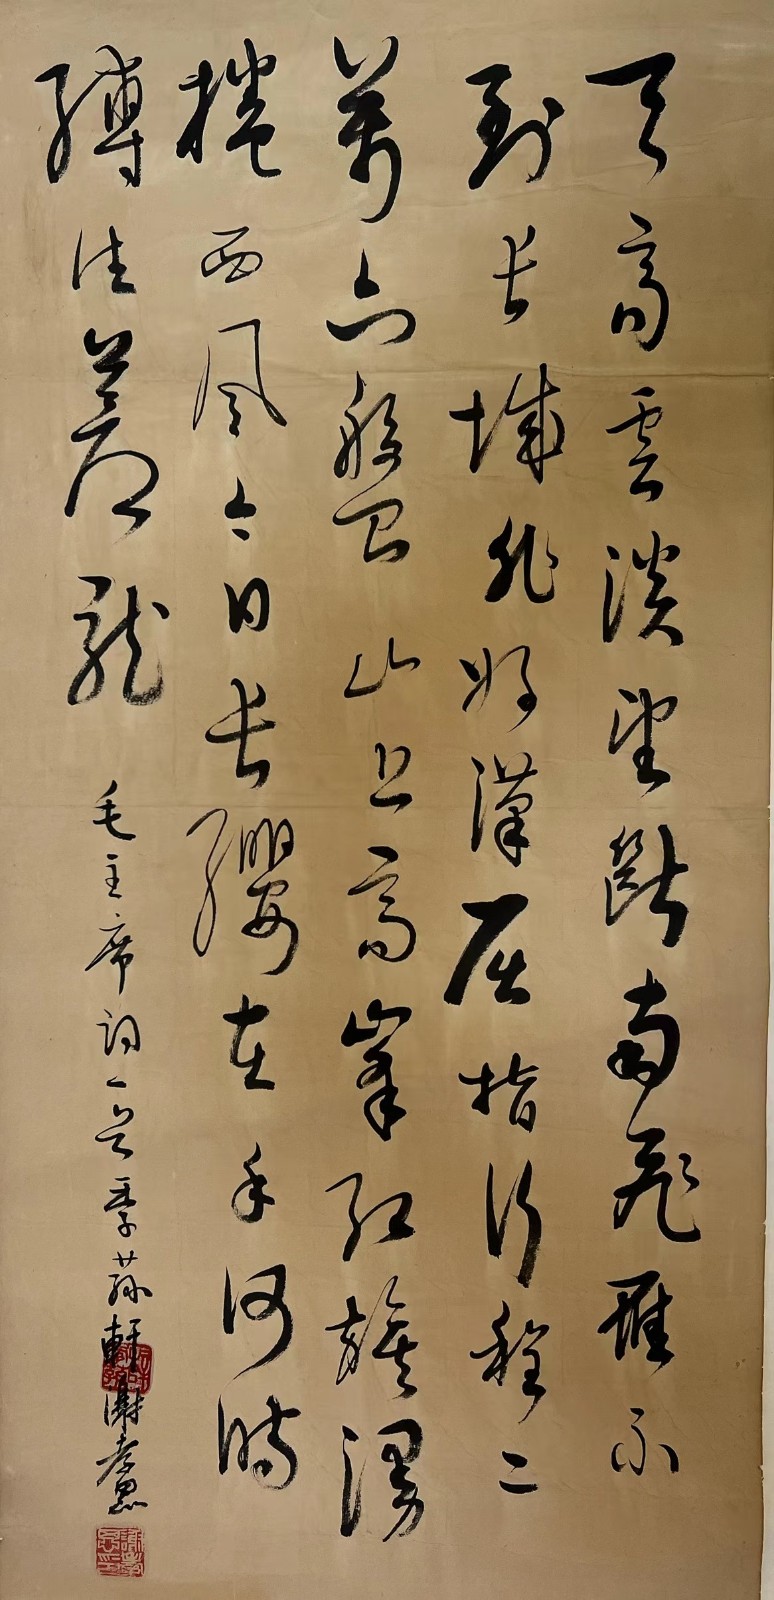 天高雲淡望斷南飛雁不
到長城非好漢屈指行程二
萬六盤山上高峯紅旗漫
捲西風今日長纓在手何時
縛住蒼龍 毛主席詞一首 季蓀軒謝孝思
謝孝思印